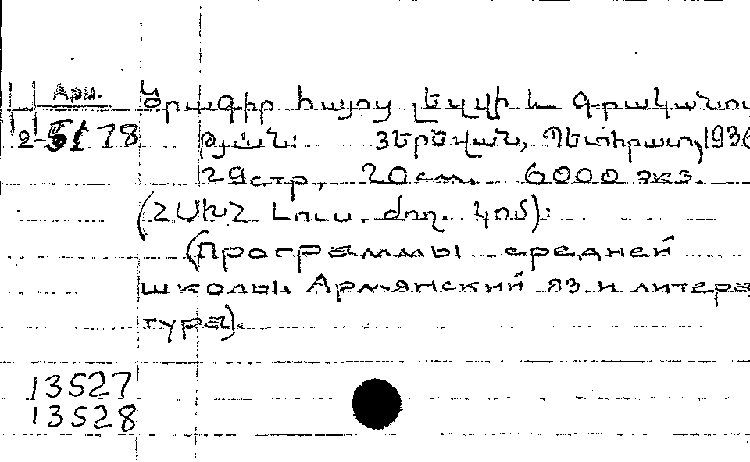 Арм.
Ծրագիր հայոց լեզվի և գրականու
2-51 78 թյան: Յերևան, Պետհրատ, 193
29 стр, 20 см. 6000 экз.
(ՀՍԽՀ Լուս. ժող. կոմ):
(Программы средней
школы. Армянский яз и литера
тура).
13527
13528